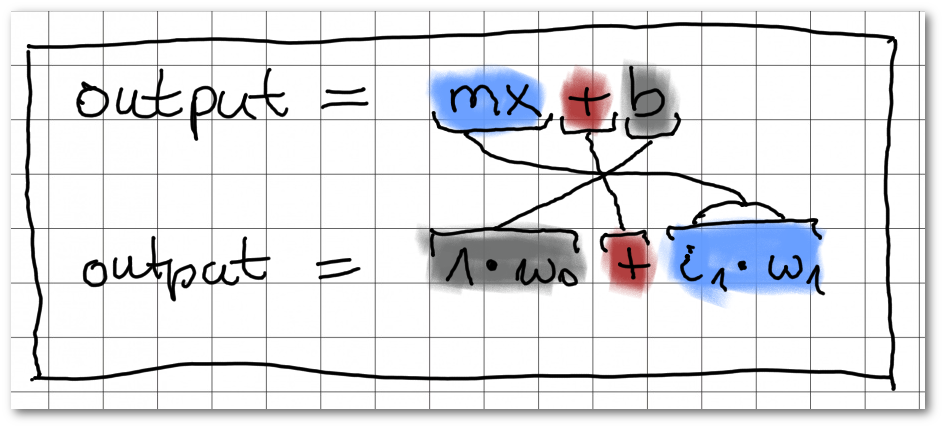 output = mx + b
output = 1 · w₀ + i₁ · w₁